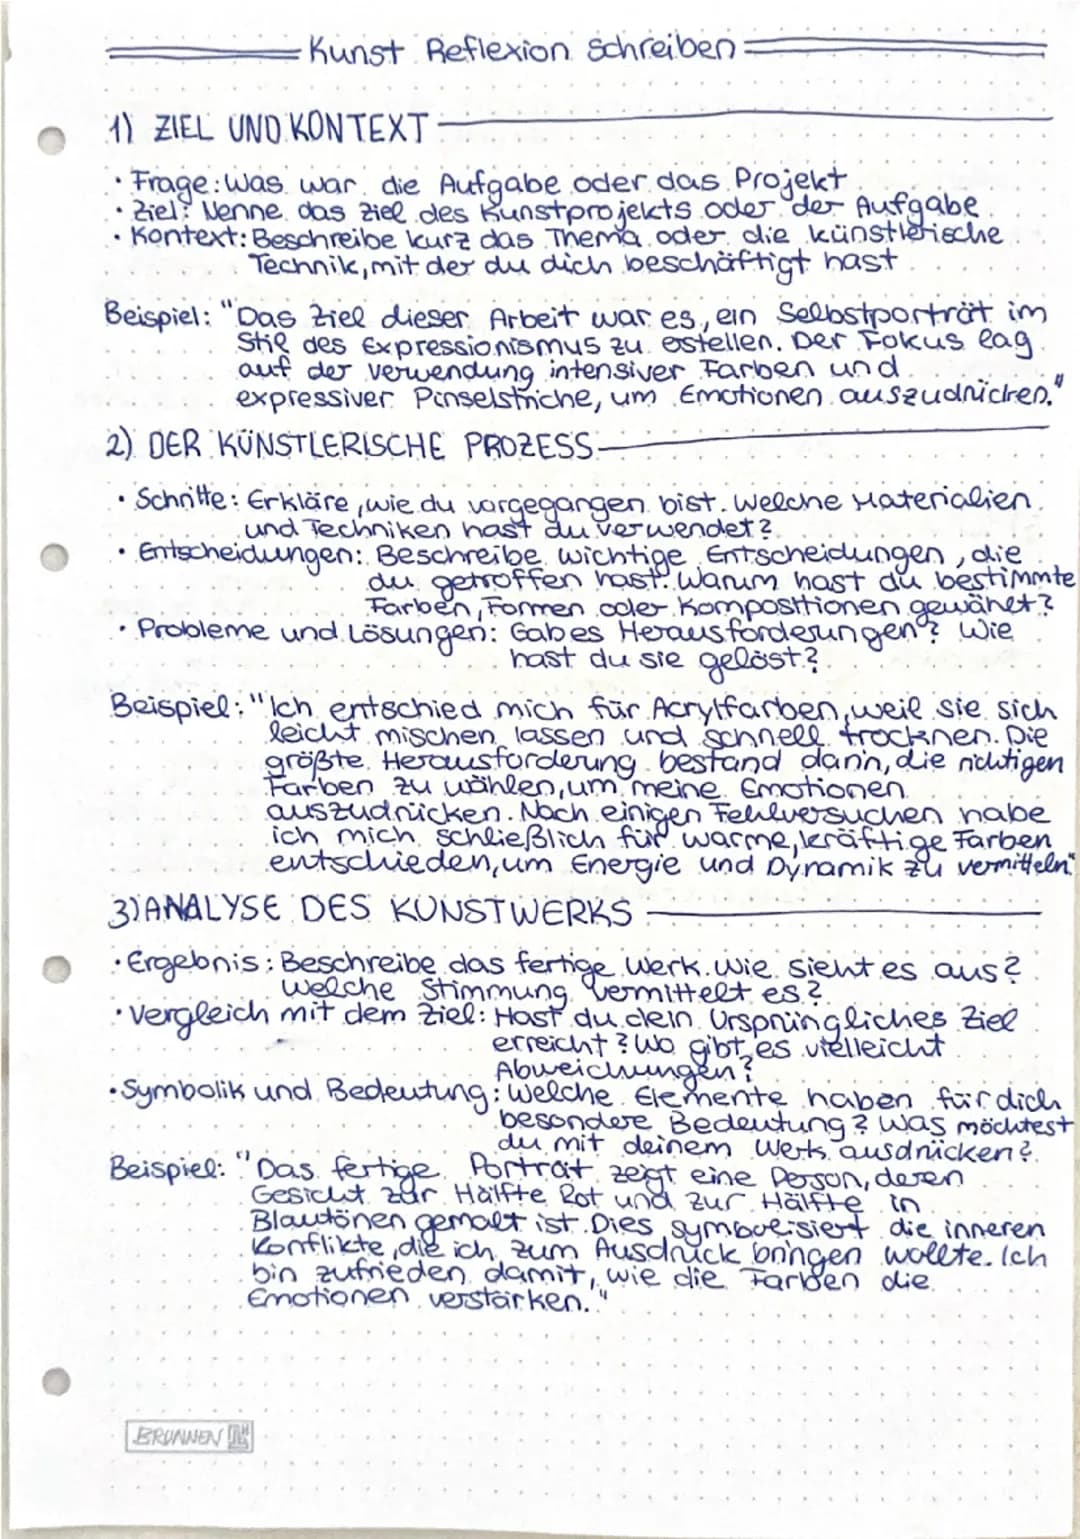 Kunst Reflexion schreiben
1) ZIEL UND KONTEXT
• Frage: Was war die Aufgabe oder das Projekt
• Ziel: Nenne das Ziel des Kunstprojekts oder der Aufgabe
• Kontext: Beschreibe kurz das Thema oder die künstlerische
Technik, mit der du dich beschäftigt hast
Beispiel: "Das Ziel dieser Arbeit war es, ein Selbstporträt im
Stil des Expressionismus zu estellen. Der Fokus lag
auf der verwendung intensiver Farben und
expressiver Pinselstriche, um Emotionen auszudrücken."
2) DER KÜNSTLERISCHE PROZESS
• Schritte: Erkläre, wie du vorgegangen bist. Welche Materialien
und Techniken hast du verwendet?
• Entscheidungen: Beschreibe wichtige Entscheidungen, die
du getroffen hast. Warum hast du bestimmte
Farben, Formen oder Kompositionen gewählt?
• Probleme und Lösungen: Gab es Herausforderungen? Wie
hast du sie gelöst?
Beispiel: "Ich entschied mich für Acrylfarben, weil sie sich
leicht mischen lassen und schnell trocknen. Die
größte Herausforderung bestand darin, die richtigen
Farben zu wählen, um meine Emotionen
auszudrücken. Nach einigen Fehlversuchen habe
ich mich schließlich für warme, kräftige Farben
entschieden, um Energie und Dynamik zu vermitteln"
3) ANALYSE DES KUNSTWERKS
• Ergebnis: Beschreibe das fertige Werk. Wie sieht es aus?
Welche Stimmung vermittelt es?
• Vergleich mit dem Ziel: Hast du dein Ursprüngliches Ziel
erreicht? Wo gibt es vielleicht
Abweichungen?
• Symbolik und Bedeutung: Welche Elemente haben für dich
besondere Bedeutung? Was möchtest
du mit deinem Werk ausdrücken?
Beispiel: "Das fertige Porträt zeigt eine Person, deren
Gesicht zur Hälfte Rot und zur Hälfte in
Blautönen gemalt ist. Dies symbolisiert die inneren
Konflikte, die ich zum Ausdruck bringen wollte. Ich
bin zufrieden damit, wie die Farben die
Emotionen verstärken."
BRUNNEN